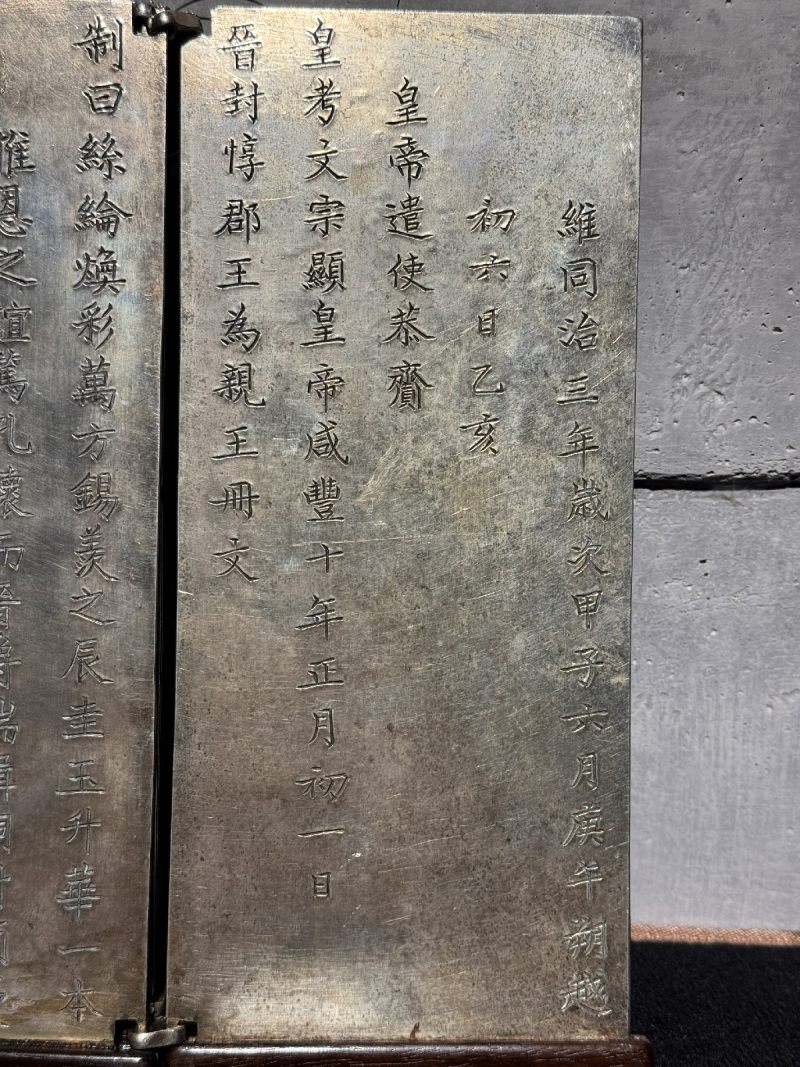 維同治三年歲次甲子六月庚午朔越
初六日乙亥
皇帝遣使恭齎
皇考文宗顯皇帝咸豐十年正月初一日
晉封惇郡王為親王冊文
制曰絲綸煥彩萬方錫羨之辰圭玉升華一本
惟恩之誼篤孔懷而晉爵